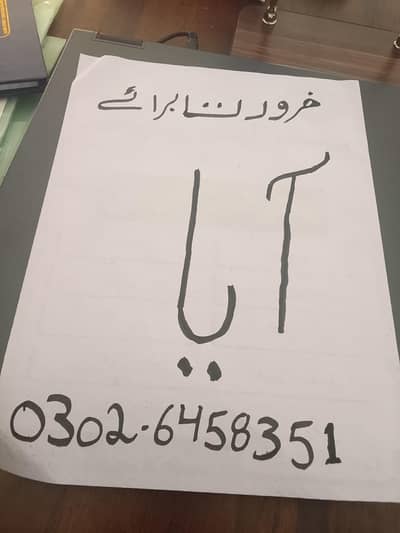 ضرورت برائے
آیا
0302-6458351